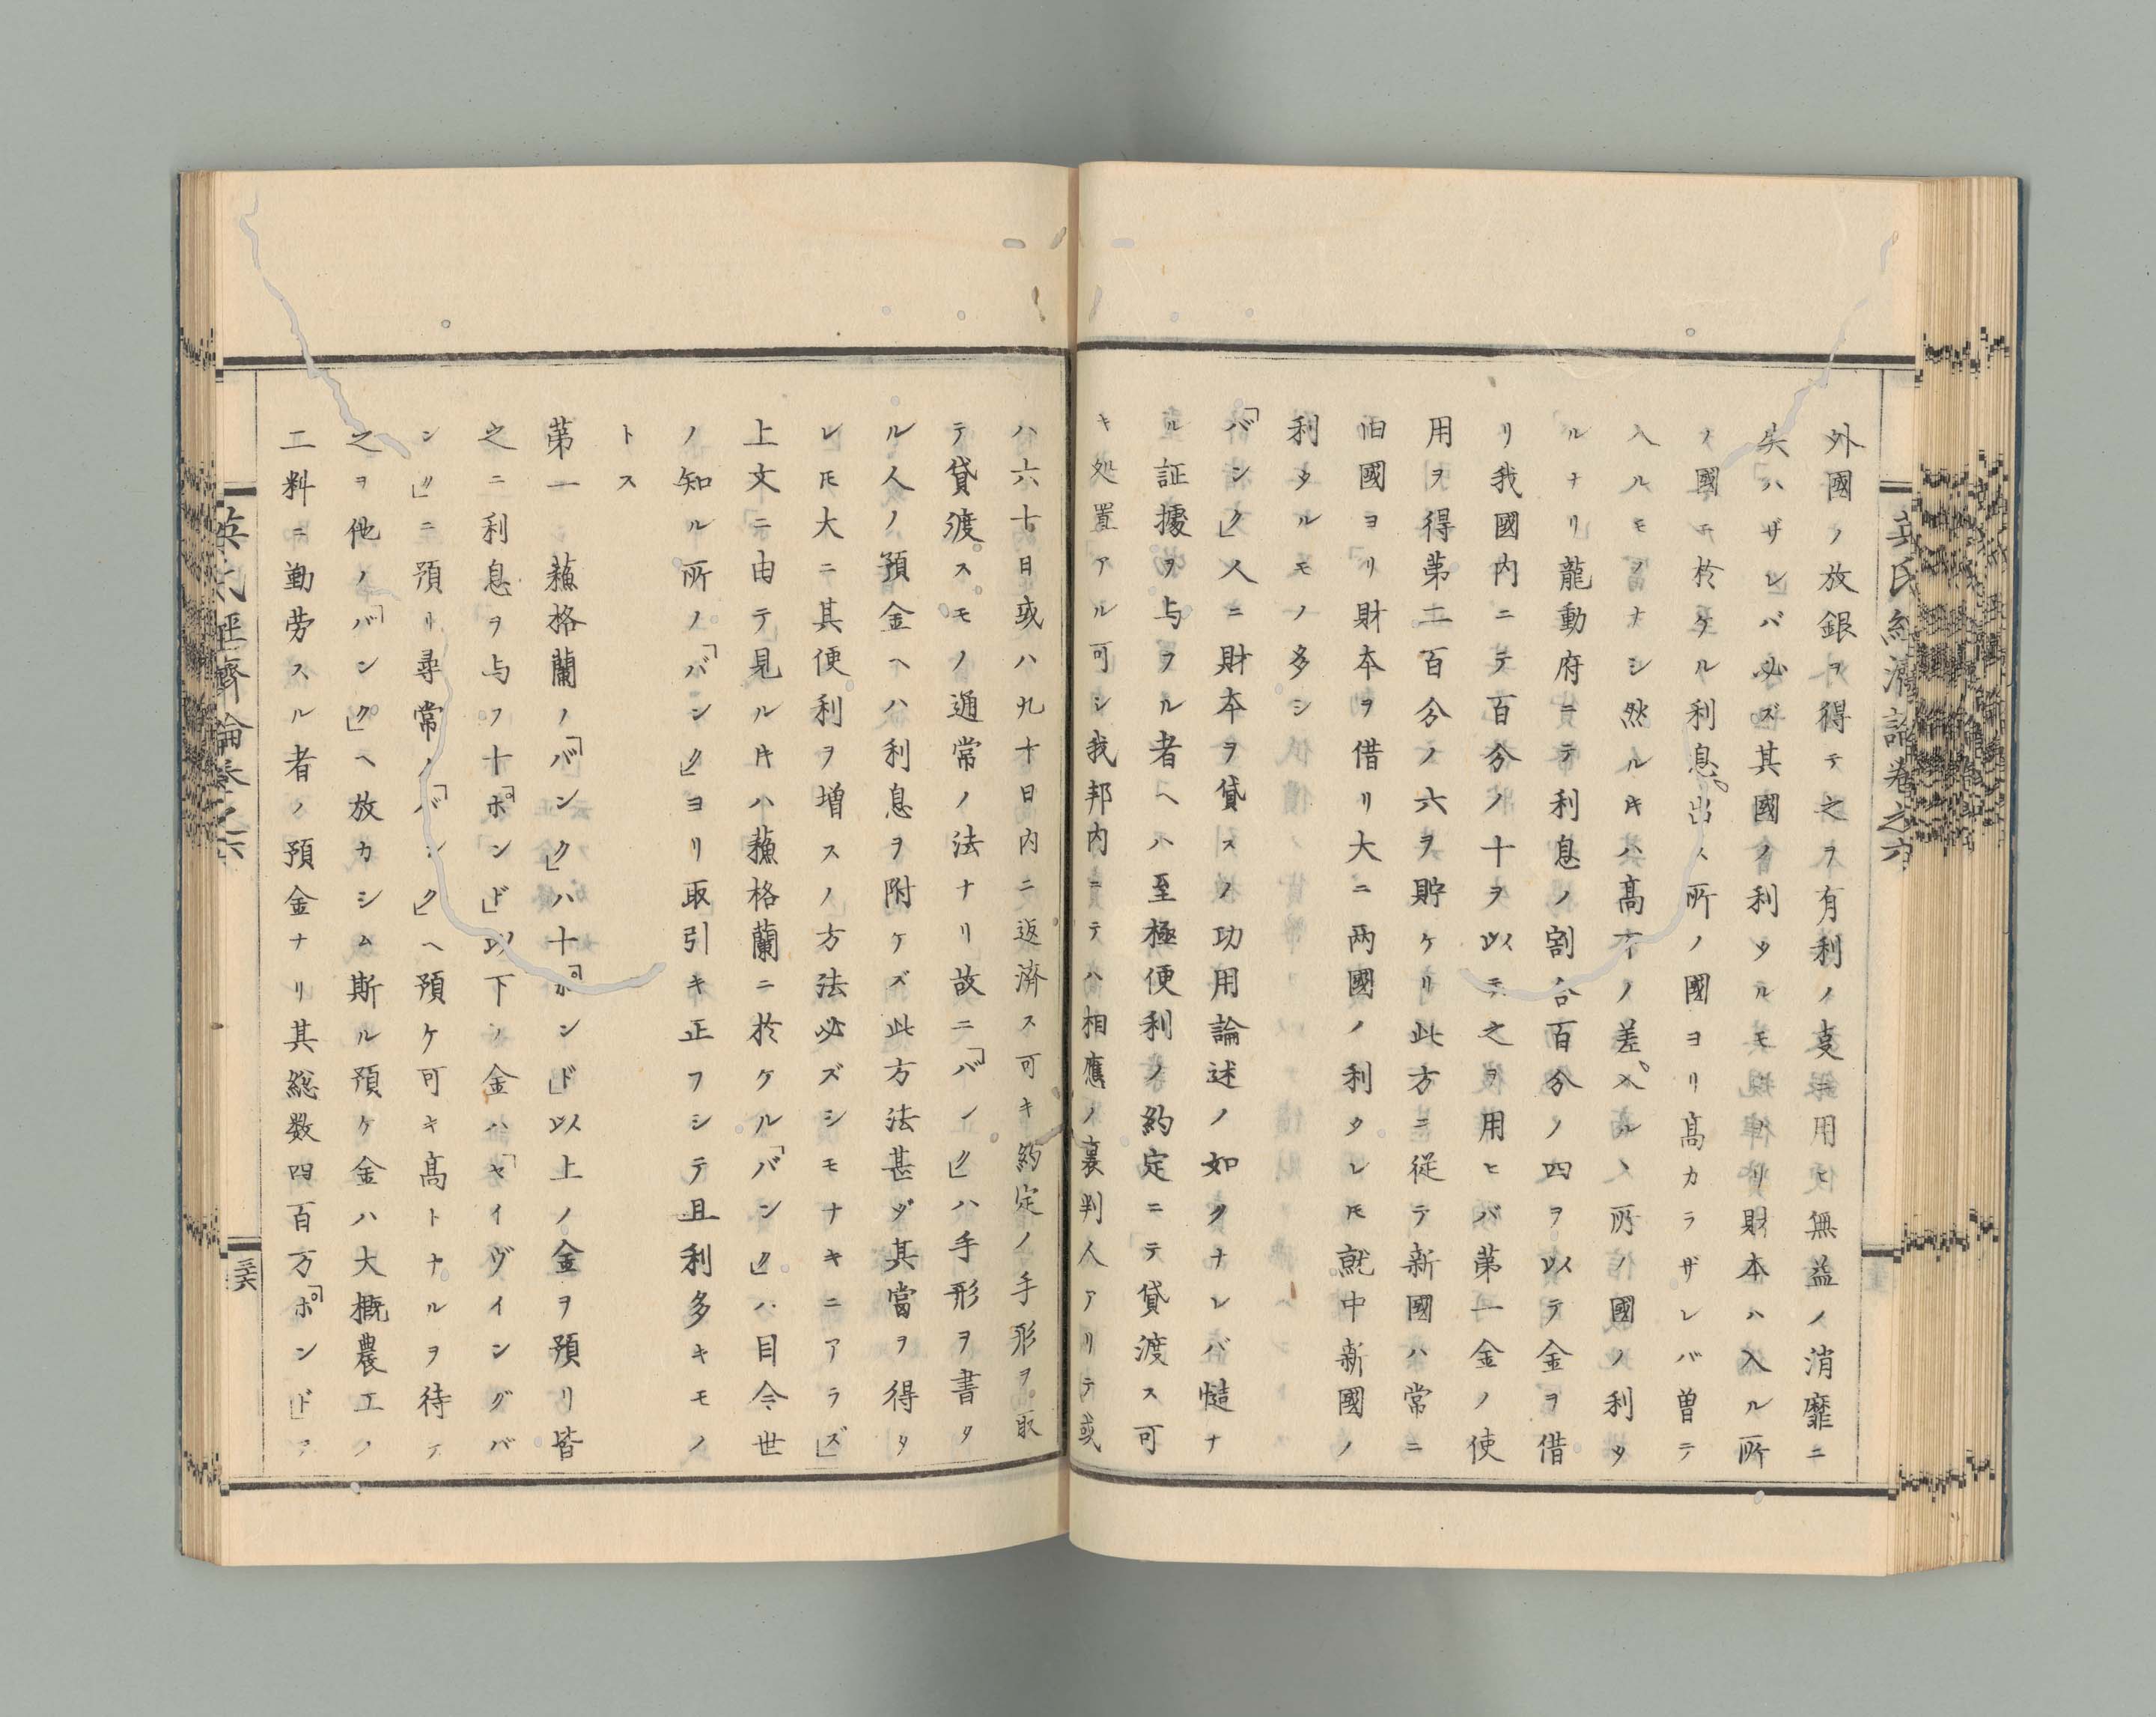 英氏經濟論卷之六
外國ノ放銀ヲ得テ之ヲ有利ノ㕝ニ用ヒ無益ノ消靡ニ
失ハザレバ必ズ其國ノ利タルモノナリ財本ハ入ル所
ノ國ニ於ケル利息出ス所ノ國ヨリ髙カラザレバ曽テ
入ルモノナシ然ル片ハ髙下ノ差入ル所ノ國ノ利タ
ルナリ龍動府ニテ利息ノ割合百分ノ四ヲ以テ金ヲ借
リ我國内ニテ百分ノ十ヲ以テ之ヲ用ヒバ第一金ノ使
用ヲ得第二百分ノ六ヲ貯ケリ此方ニ従テ新國ハ常ニ
旧國ヨリ財本ヲ借リ大ニ兩國ノ利タレ𪜈就中新國ノ
利タルモノ多シ
「バンク」人ニ財本ヲ貸スノ功用論述ノ如クナレバ慥ナ
ル証據ヲ与フル者ヘハ至極便利ノ約定ニテ貸渡ス可
キ処置アル可シ我邦内ニテハ相應ノ裏判人アリテ或
ハ六十日或ハ九十日内ニ返濟ス可キ約定ノ手形ヲ取
テ貸渡スモノ通常ノ法ナリ故ニ「バンク」ハ手形ヲ書タ
ル人ノ預金ヘハ利息ヲ附ケズ此方法甚ダ其當ヲ得タ
レ𪜈大ニ其便利ヲ増スノ方法必ズシモナキニアラズ」
上文ニ由テ見ル片ハ蘓格蘭ニ於ケル「バンク」ハ目今世
ノ知ル所ノ「バンク」ヨリ取引キ正フシテ且利多キモノ
トス
第一 蘓格蘭ノ「バンク」ハ十「ポンド」以上ノ金ヲ預リ皆
之ニ利息ヲ与フ十「ポンド」以下ノ金ハ「セイヴイングバ
ンク」ニ預リ尋常ノ「バンク」ヘ預ケ可キ髙トナルヲ待テ
之ヲ他ノ「バンク」ヘ放カシム斯ル預ケ金ハ大概農工ノ
二料ニ勤労スル者ノ預金ナリ其総数四百万「ポンド」ア
英氏經濟論卷之六
三六